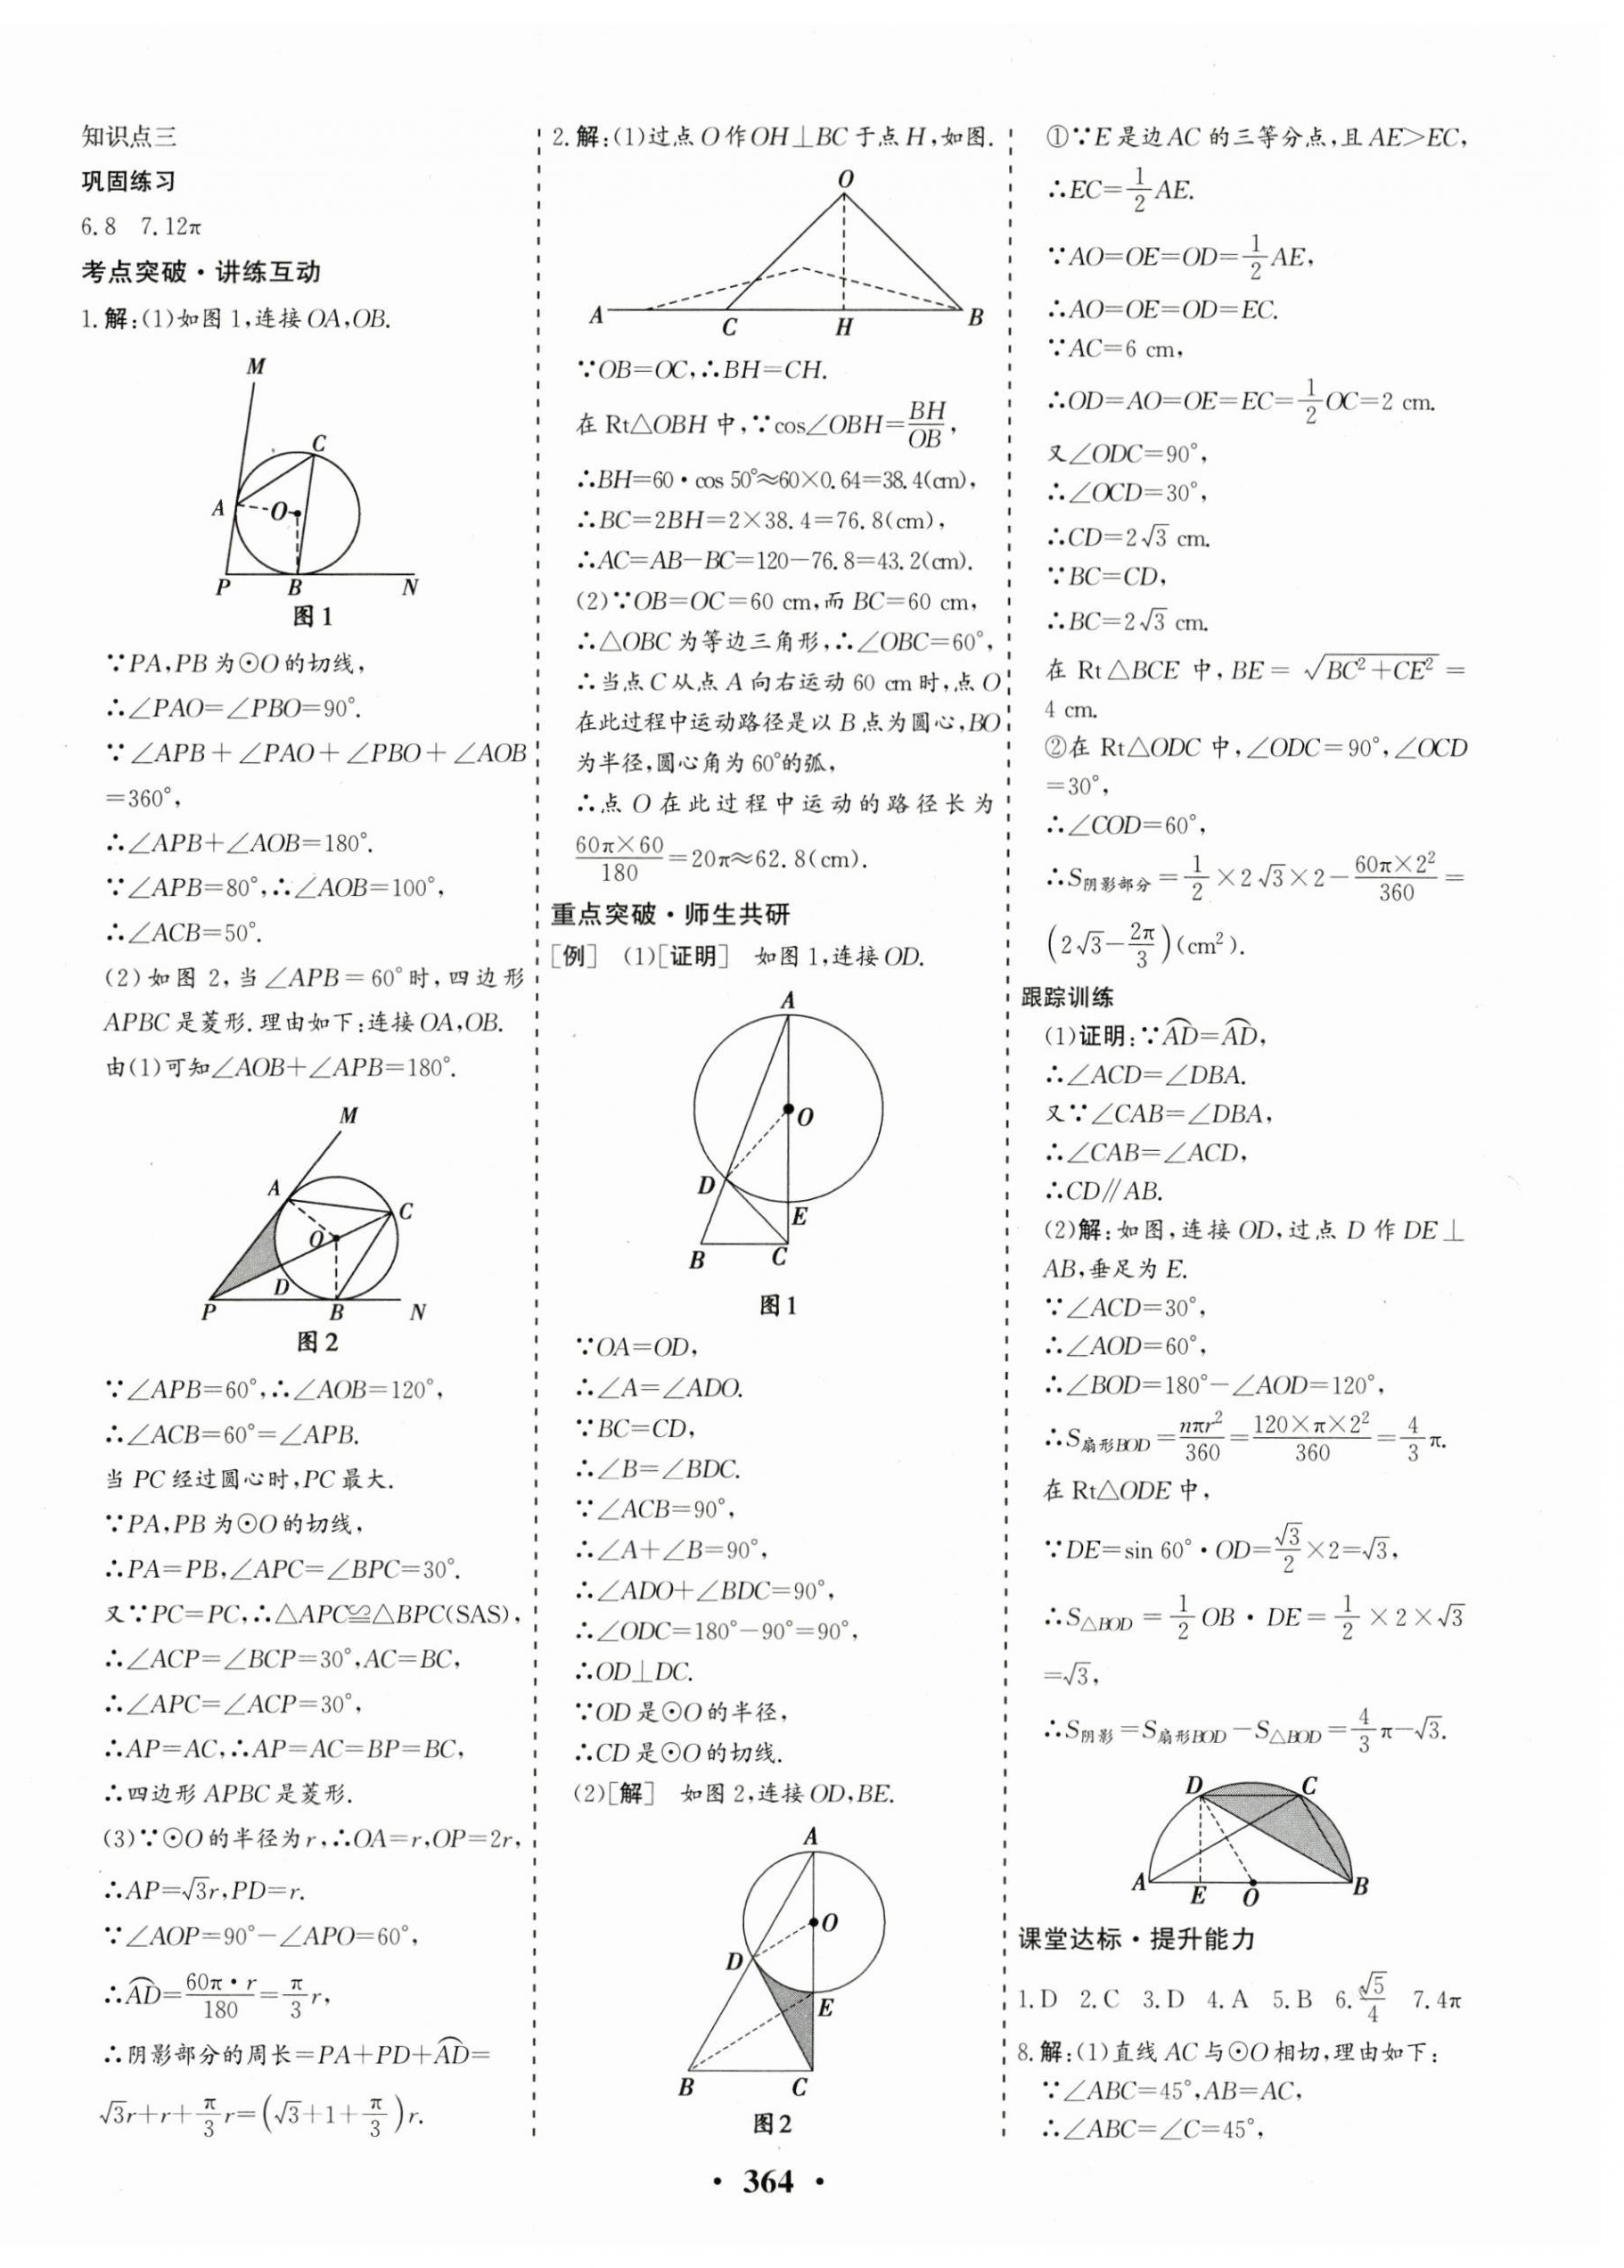 知识点三
巩固练习
6.8 7.12π
考点突破·讲练互动
1.解:(1)如图1,连接OA,OB.
M
C
A
O
P B N
图1
∵PA,PB为⊙O的切线,
∴∠PAO=∠PBO=90°.
∵∠APB+∠PAO+∠PBO+∠AOB
=360°,
∴∠APB+∠AOB=180°.
∵∠APB=80°,∴∠AOB=100°,
∴∠ACB=50°.
(2)如图2,当∠APB=60°时,四边形
APBC是菱形.理由如下:连接OA,OB.
由(1)可知∠AOB+∠APB=180°.
M
A
C
O
D
P B N
图2
∵∠APB=60°,∴∠AOB=120°,
∴∠ACB=60°=∠APB.
当PC经过圆心时,PC最大.
∵PA,PB为⊙O的切线,
∴PA=PB,∠APC=∠BPC=30°.
又∵PC=PC,∴△APC≌△BPC(SAS),
∴∠ACP=∠BCP=30°,AC=BC,
∴∠APC=∠ACP=30°,
∴AP=AC,∴AP=AC=BP=BC,
∴四边形APBC是菱形.
(3)∵⊙O的半径为r,∴OA=r,OP=2r,
∴AP=√3r,PD=r.
∵∠AOP=90°-∠APO=60°,
∴⌒AD=60π·r/180=π/3 r,
∴阴影部分的周长=PA+PD+⌒AD=
√3r+r+π/3 r=(√3+1+π/3)r.
2.解:(1)过点O作OH⊥BC于点H,如图.
O
A C H B
∵OB=OC,∴BH=CH.
在Rt△OBH中,∵cos∠OBH=BH/OB,
∴BH=60·cos 50°≈60×0.64=38.4(cm),
∴BC=2BH=2×38.4=76.8(cm),
∴AC=AB-BC=120-76.8=43.2(cm).
(2)∵OB=OC=60 cm,而BC=60 cm,
∴△OBC为等边三角形,∴∠OBC=60°,
∴当点C从点A向右运动60 cm时,点O
在此过程中运动路径是以B点为圆心,BO
为半径,圆心角为60°的弧,
∴点O在此过程中运动的路径长为
60π×60/180=20π≈62.8(cm).
重点突破·师生共研
[例] (1)[证明] 如图1,连接OD.
A
O
D
E
B C
图1
∵OA=OD,
∴∠A=∠ADO.
∵BC=CD,
∴∠B=∠BDC.
∵∠ACB=90°,
∴∠A+∠B=90°,
∴∠ADO+∠BDC=90°,
∴∠ODC=180°-90°=90°,
∴OD⊥DC.
∵OD是⊙O的半径,
∴CD是⊙O的切线.
(2)[解] 如图2,连接OD,BE.
A
O
D
E
B C
图2
①∵E是边AC的三等分点,且AE>EC,
∴EC=1/2 AE.
∵AO=OE=OD=1/2 AE,
∴AO=OE=OD=EC.
∵AC=6 cm,
∴OD=AO=OE=EC=1/2 OC=2 cm.
又∠ODC=90°,
∴∠OCD=30°,
∴CD=2√3 cm.
∵BC=CD,
∴BC=2√3 cm.
在Rt△BCE中,BE=√(BC²+CE²)=
4 cm.
②在Rt△ODC中,∠ODC=90°,∠OCD
=30°,
∴∠COD=60°,
∴S阴影部分=1/2×2√3×2-60π×2²/360=
(2√3-2π/3)(cm²).
跟踪训练
(1)证明:∵⌒AD=⌒AD,
∴∠ACD=∠DBA.
又∵∠CAB=∠DBA,
∴∠CAB=∠ACD,
∴CD∥AB.
(2)解:如图,连接OD,过点D作DE⊥
AB,垂足为E.
∵∠ACD=30°,
∴∠AOD=60°,
∴∠BOD=180°-∠AOD=120°,
∴S扇形BOD=nπr²/360=120×π×2²/360=4/3 π.
在Rt△ODE中,
∵DE=sin 60°·OD=√3/2×2=√3,
∴S△BOD=1/2 OB·DE=1/2×2×√3
=√3,
∴S阴影=S扇形BOD-S△BOD=4/3 π-√3.
D C
A E O B
课堂达标·提升能力
1.D 2.C 3.D 4.A 5.B 6.√5/4 7.4π
8.解:(1)直线AC与⊙O相切,理由如下:
∵∠ABC=45°,AB=AC,
∴∠ABC=∠C=45°,
· 364 ·